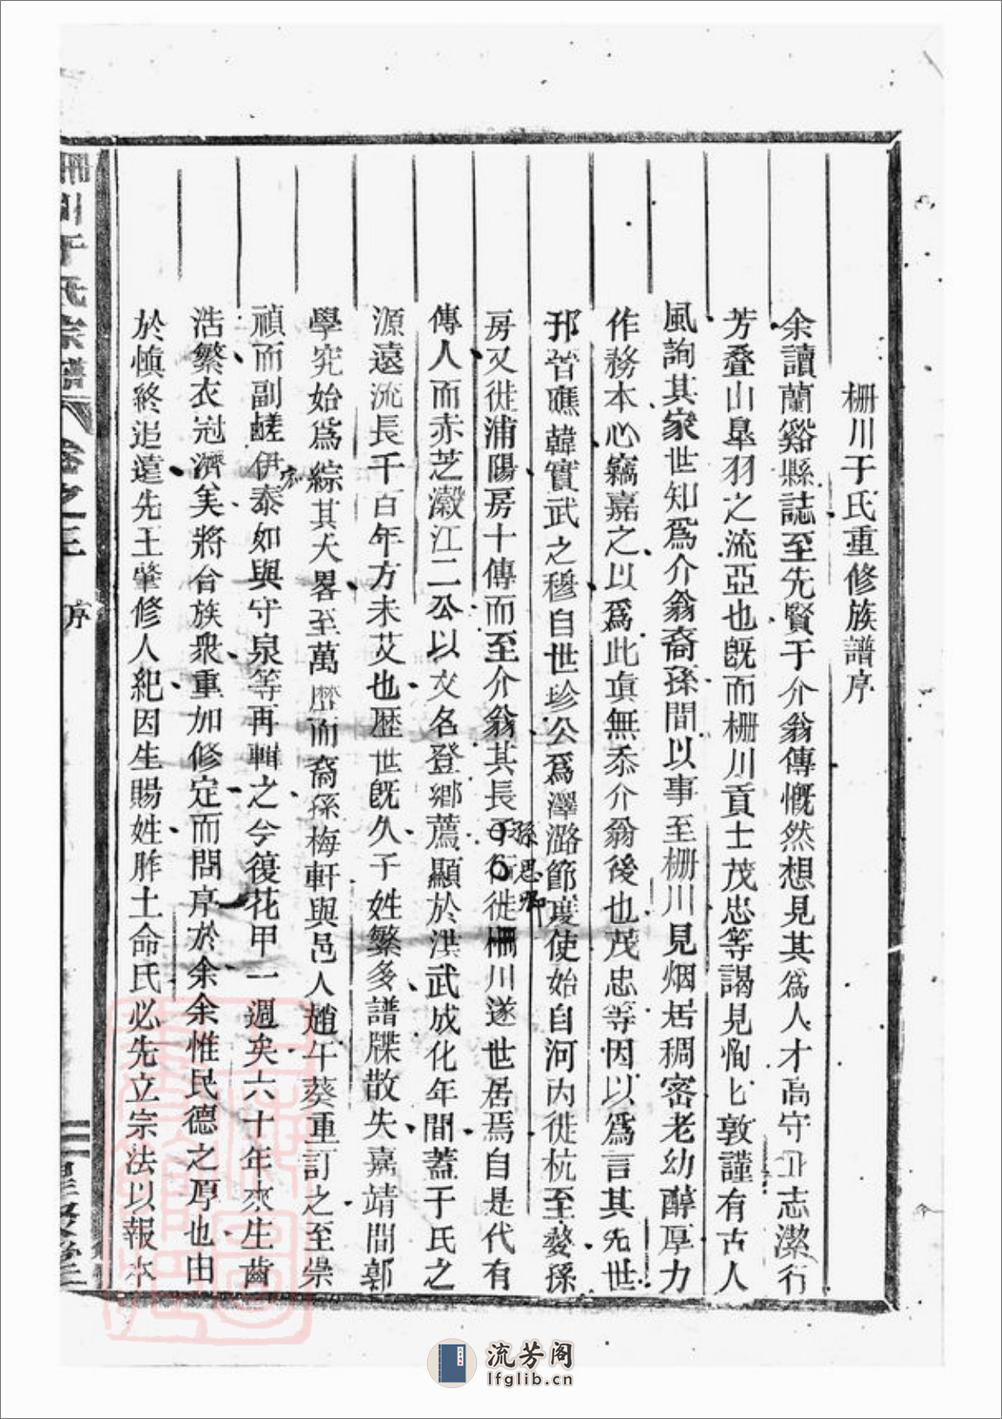 柵川于氏重修族譜序
余讀蘭谿縣誌至先賢于介翁傳慨然想見其爲人才高守正志潔行
芳疊山臯羽之流亞也既而柵川貢士茂忠等謁見恂匕敦謹有古人
風詢其家世知爲介翁裔孫間以事至柵川見烟居稠密老幼醇厚力
作務本心竊嘉之以爲此眞無忝介翁後也茂忠等因以爲言其先世
邘晉鄘韓實武之穆自世珍公爲澤潞節度使始自河內徙杭至婺孫
房又徙浦陽房十傳而至介翁其長子徙柵川遂世居焉自是代有
孫思
傳人而赤芝瀫江二公以文名登鄉薦顯於洪武成化年間蓋于氏之
源遠流長千百年方未艾也歷世既久子姓繁多譜牒散失嘉靖間郭
學究始爲綜其大畧至萬歷而裔孫梅軒與邑人趙午葵重訂之至崇
禎而副鹺伊泰如與守泉等再輯之今復花甲一週矣六十年來生齒
浩繁衣冠濟矣將合族衆重加修定而問序於余余惟民德之厚也由
於慎終追遠先王肇修人紀因生賜姓胙土命氏必先立宗法以報本
柵川于氏宗譜
卷之三
序
流芳阁
lfglib.cn